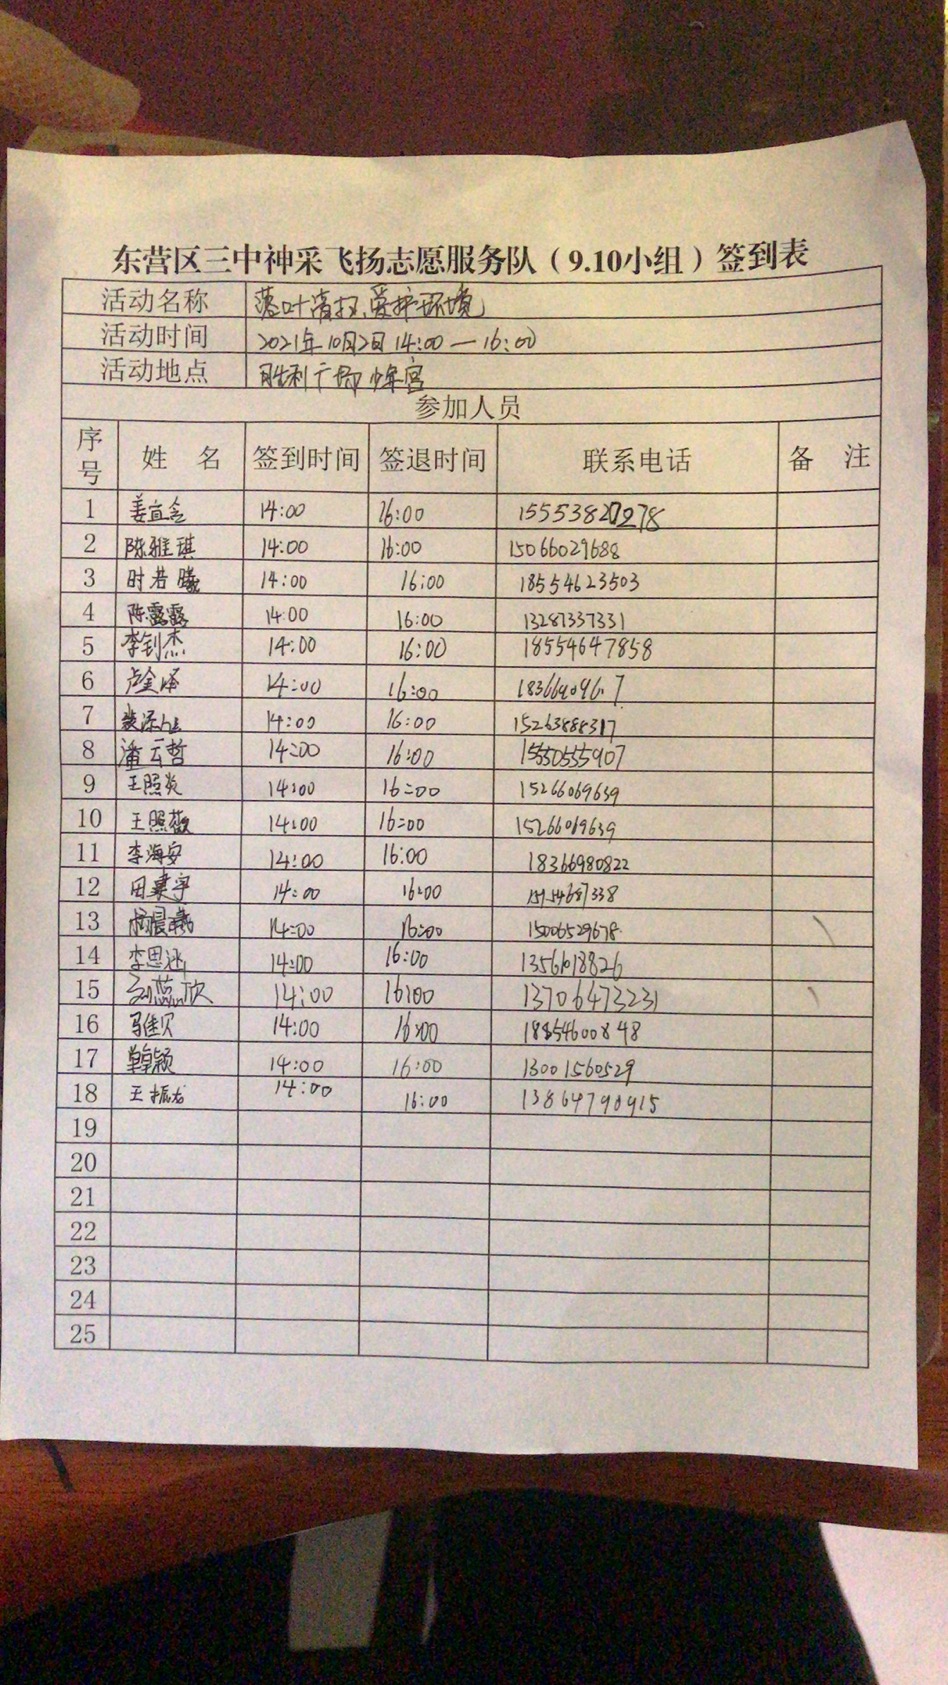 东营区三中神采飞扬志愿服务队（9.10小组）签到表
活动名称 落叶清扫、爱护环境
活动时间 2021年10月2日 14:00—16:00
活动地点 胜利广场 少年宫
参加人员
序号 姓 名 签到时间 签退时间 联系电话 备 注
1 14:00 16:00
2 陈雅琪 14:00 16:00 15066029688
3 时若曦 14:00 16:00 18554623503
4 陈露露 14:00 16:00 13281337331
5 李钊杰 14:00 16:00 18554647858
6 卢金泽 14:00 16:00
7 14:00 16:00 15263888317
8 潘云哲 14:00 16:00 15550555907
9 王照炎 14:00 16:00 15266069639
10 14:00 16:00 15266069639
11 李海安 14:00 16:00 18366980822
12 田建宇 14:00 16:00
13 杨晨曦 14:00 16:00 15006529678
14 李思涵 14:00 16:00
15 刘蕊欣 14:00 16:00 13706473231
16 马佳贝 14:00 16:00 18854600848
17 单颖 14:00 16:00 13001560529
18 王振龙 14:00 16:00 13864790915
19
20
21
22
23
24
25